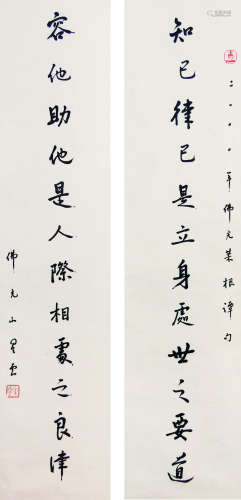 二〇〇〇年佛光菜根譚句
知己律己是立身處世之要道
容他助他是人際相處之良津
佛光山星雲